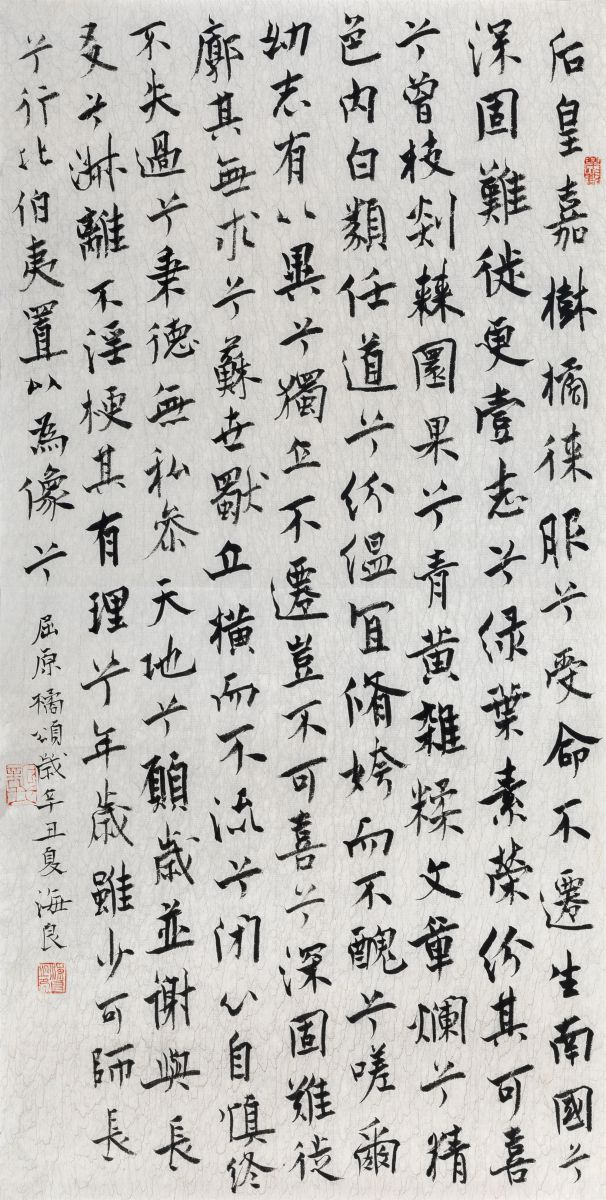 后皇嘉樹橘徠服兮受命不遷生南國兮
深固難徙更壹志兮绿葉素榮纷其可喜
兮曾枝剡棘圜果兮青黄雜糅文章爛兮精
色内白類任道兮纷缊宜脩姱而不醜兮嗟爾
幼志有以異兮獨立不遷豈不可喜兮深固難徙
廓其無求兮蘇世獨立横而不流兮閉心自慎终
不失過兮秉德無私参天地兮願歲並謝與長
友兮淑離不淫梗其有理兮年歲雖少可師長
兮行比伯夷置以為像兮
屈原橘頌歲辛丑夏海良